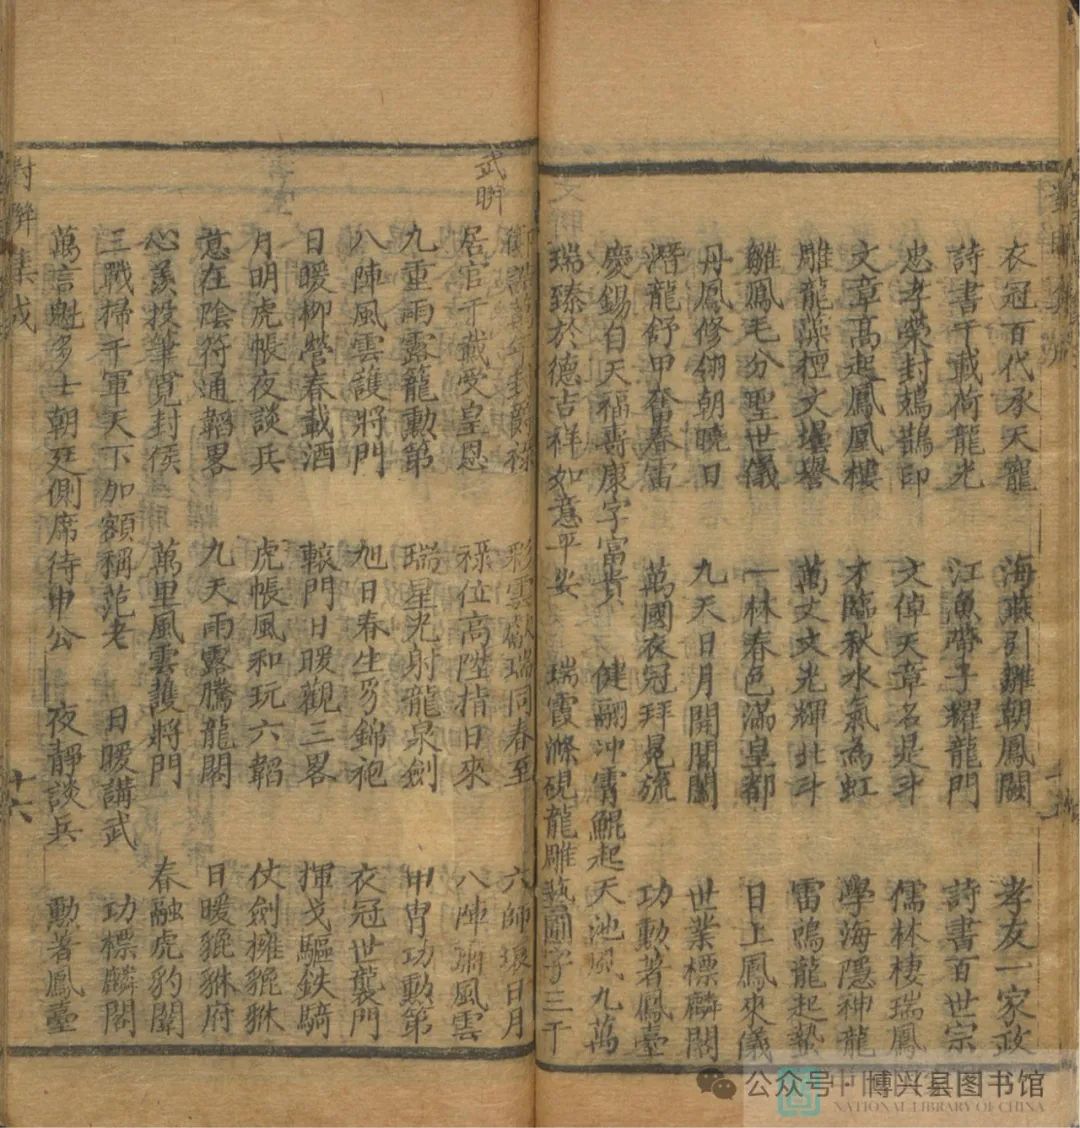 衣冠百代承天寵　海燕引雛朝鳳闕　孝友一家政
詩書千載荷龍光　江魚帶子耀龍門　詩書百世宗
忠孝榮封鵲印　文倬天章名是斗　儒林棲瑞鳳
文章高起鳳凰樓　才臨秋水氣為虹　學海隱神龍
雕龍藻檀文壇譽　萬丈文光輝北斗　雷鳴龍起蟄
雛鳳毛分聖世儀　一林春色滿皇都　日上鳳來儀
丹鳳修翎朝曉日　九天日月開閶闔　世業標麟閣
潛龍舒甲奮春雷　萬國衣冠拜冕旒　功勳著鳳臺
慶錫自天福壽康字富貴　健翮冲霄鯤起天池風九萬
瑞臻於德吉祥如意平安　瑞霞滌硯龍雕藝圃字三千
武聨
封爵祿　彩雲獻瑞同春至　六師環日月
居官千載受皇恩　祿位高陞指日來　八陣風雲
九重雨露籠勳第　瑞星光射龍泉劍　甲冑功勳第
八陣風雲護將門　旭日春生豸錦袍　衣冠世襲門
日暖柳營春載酒　轅門日暖觀三畧　揮戈驅鉄騎
月明虎帳夜談兵　虎帳風和玩六韜　仗劍擁貔貅
意在陰符通韜畧　九天雨露騰龍閣　日暖貔貅府
心羨投筆覓封侯　萬里風雲護將門　春融虎豹闈
三戰掃千軍天下加額稱范老　日暖講武　功標麟閣
萬言魁多士朝廷側席待申公　夜靜談兵　勳著鳳臺
對聨集成
十六
公众号·博兴县图书馆
NATIONAL LIBRARY OF CHINA